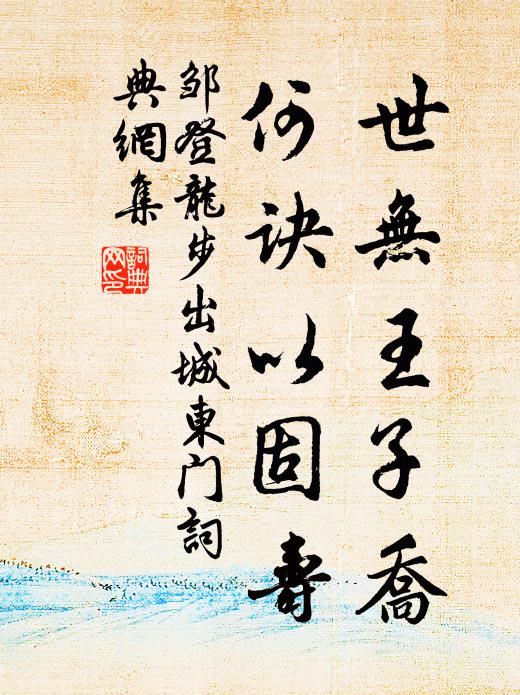 世無王子喬
何訣以固壽
邹登龍步出城東门詞
典網集
詞典网印